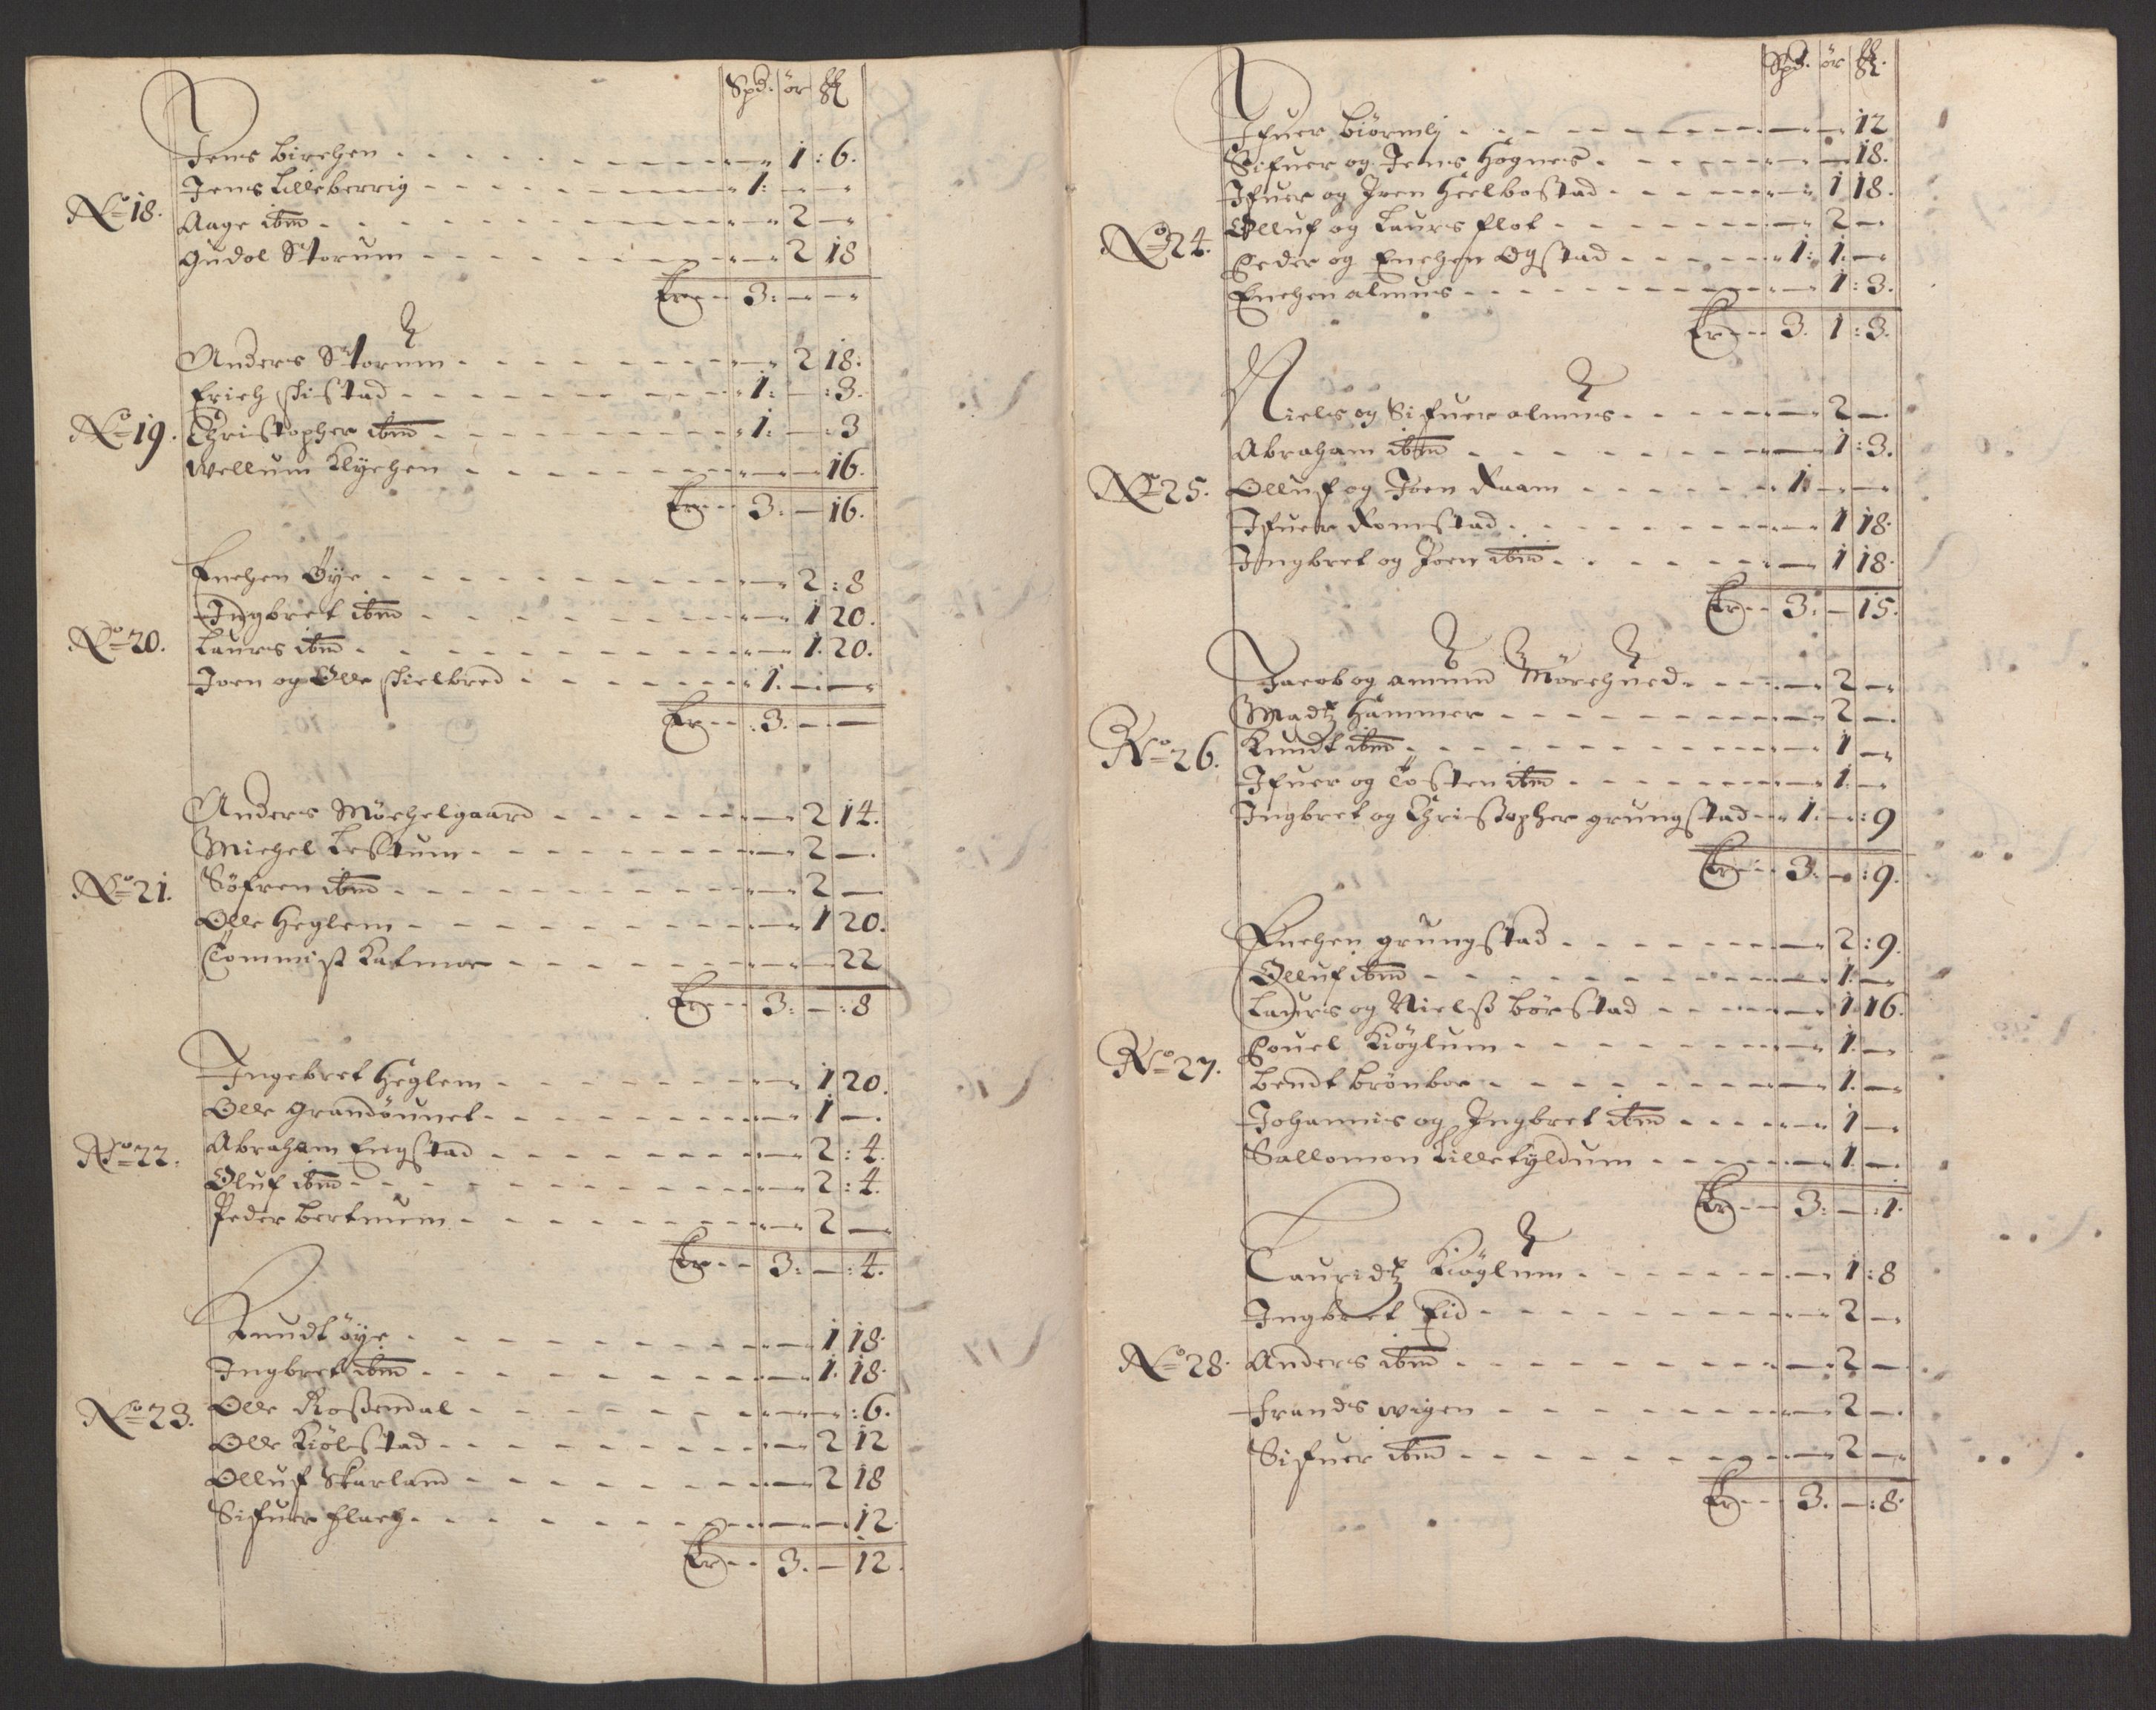 Spd. ör
Jens Birchen - - - 1 : 6.
Jens Lilleberrig - - - 1: — —
No 18. Aage ibm - - - 2 —
Gudol Storum - - - 2 18
Er - - 3: — —
Anders Storum - - - 2 18:
Erich Skistad - - - 1: — : 3.
No 19. Christopher ibm - - - 1: — : 3
Wellum Klychen - - - 16.
Er - - 3: — 16.
Enchen Öye - - - 2 : 8
Ingbret ibm - - - 1 20.
No 20. Laurs ibm - - - 1. 20.
Joen og Olle Skielbred - - - 1. — —
Er - - : 3. — —
Anders Möchelgaard - - - 2 14.
Michel Lestum - - - 2 —.
No 21. Söfren ibm - - - 2 —
Olle Heglem - - - 1 20.
Commist Katmoe - - - 22
Er - - 3: — : 8
Ingebret Heglem - - - 1 20.
Olle Grandöunet - - - 1 —.
No 22. Abraham Engstad - - - 2 : 4.
Oluf ibm - - - 2 : 4.
Peder Bertnum - - - 2 —
Er - - 3: — : 4.
Knudt Öye - - - 1 18.
Ingbret ibm - - - 1. 18.
No 23. Olle Rossendal - - - : 6.
Olle Kiölstad - - - 2 12
Olluf Skarland - - - 2 18
Sifuer Flach - - - 12.
Er - - 3. — 12.
Spd. ör
Ifuer Biörmlj - - - 12
Sifuer og Jens Högnes - - - 18.
Ifuer og Iven Heelbostad - - - 1 18.
Olluf og Laurs Flot - - - 2 —
No 24. Peder og Enchen Ogstad - - - 1: 1. —
Enchen almus - - - 1 : 3.
Er - - 3. 1 : 3.
Niels og Sifuer almus - - - 2 —.
Abraham ibm - - - 1 : 3.
No 25. Olluf og Joen Raam - - - 1. — —
Ifuer Romstad - - - 1 18.
Ingbret og Joen ibm - - - 1 18.
Er - - 3. — 15.
Jacob og Amund Mörchued - - - 2 —
Madtz Hammer - - - 2 —.
No 26. Knudt ibm - - - 1 —
Ifuer og Tosten ibm - - - 1. —
Ingbret og Christopher Grungstad - - 1. — : 9
Er - - 3. — : 9.
Enchen Grungstad - - - 2 : 9.
Olluf ibm - - - 1. —
Laurs og Nielss Börstad - - - 1. 16.
No 27. Pouel Kiöglum - - - 1. —
Bendt Brönboe - - - 1. —
Johannis og Ingbret ibm - - - 1 —
Sallomon Lilletyldum - - - 1. —.
Er - - 3: — : 1.
Lauridtz Kiöglum - - - 1 : 8
Ingbret Eid - - - 2 —
No 28. Anders ibm - - - 2 —
Frands Wigen - - - 2 —.
Sifuer ibm - - - 2 —
Er - - 3. — : 8.